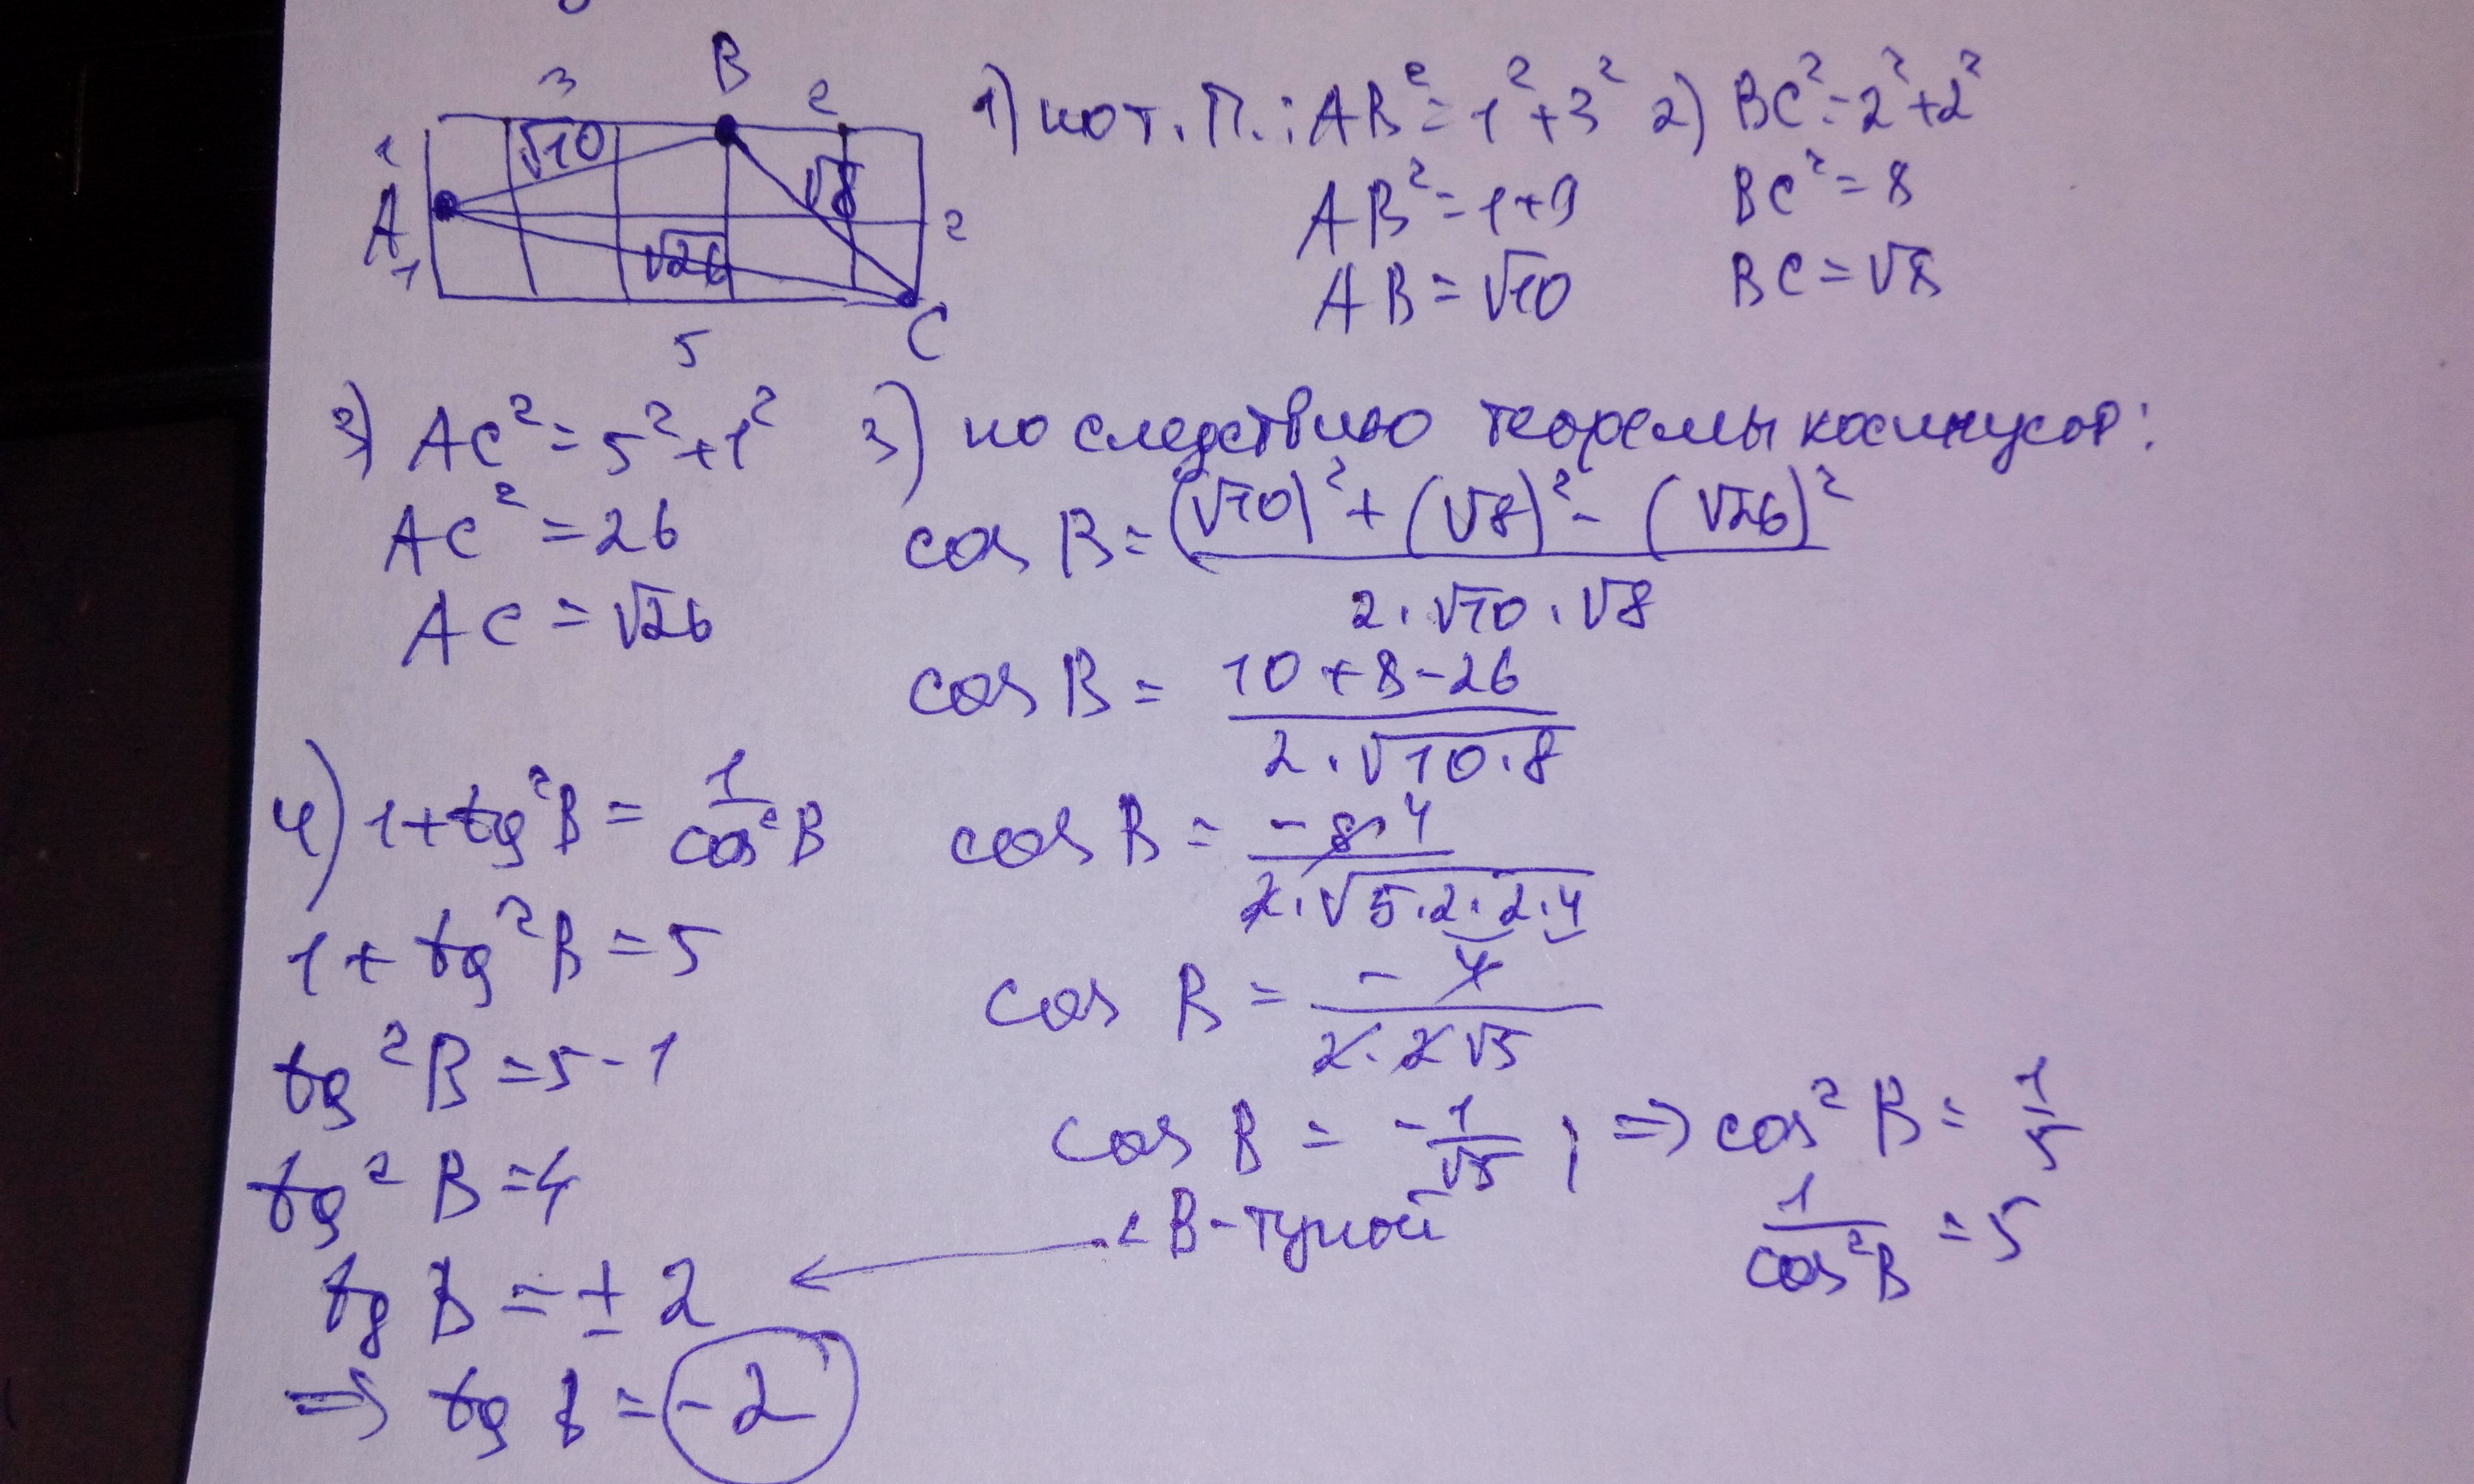 3
B
2
1
√10
√8
A
2
1
√26
5
C
1) по т. П.: AB² = 1² + 3²
AB² = 1+9
AB = √10
2) BC² = 2² + 2²
BC² = 8
BC = √8
3) AC² = 5² + 1²
AC² = 26
AC = √26
3) по следствию теоремы косинусов:
cos B = ((√10)² + (√8)² - (√26)²) / (2·√10·√8)
cos B = (10 + 8 - 26) / (2·√(10·8))
cos B = -8 4 / (2·√(5·2·2·4))
cos B = -4 / (2·2√5)
cos B = -1/√5 ; => cos² B = 1/5
∠B - тупой
1/cos²B = 5
4) 1 + tg²B = 1/cos²B
1 + tg²B = 5
tg²B = 5 - 1
tg²B = 4
tg B = ± 2
=> tg B = -2